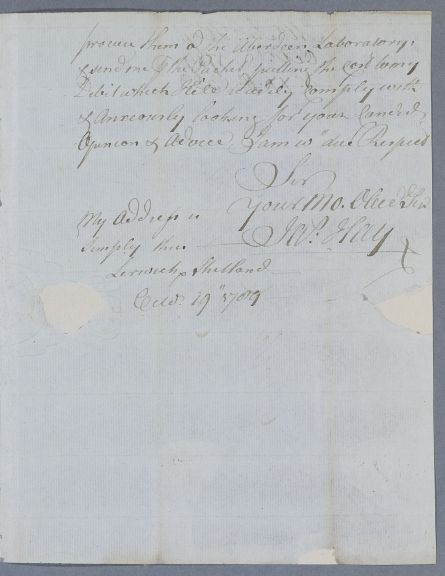 procure them at the Aberdeen Laboratory,
& send me the Packet putting the cost to my
Debit which I'll readily comply with
& Anxiously looking for your Candid
Opinion & Advice, I am wt due Respect
Sir
Your Mo. Obed Ser
Jas. Hay
My Address is
simply thus
Lerwick, Shetland
19" 1789